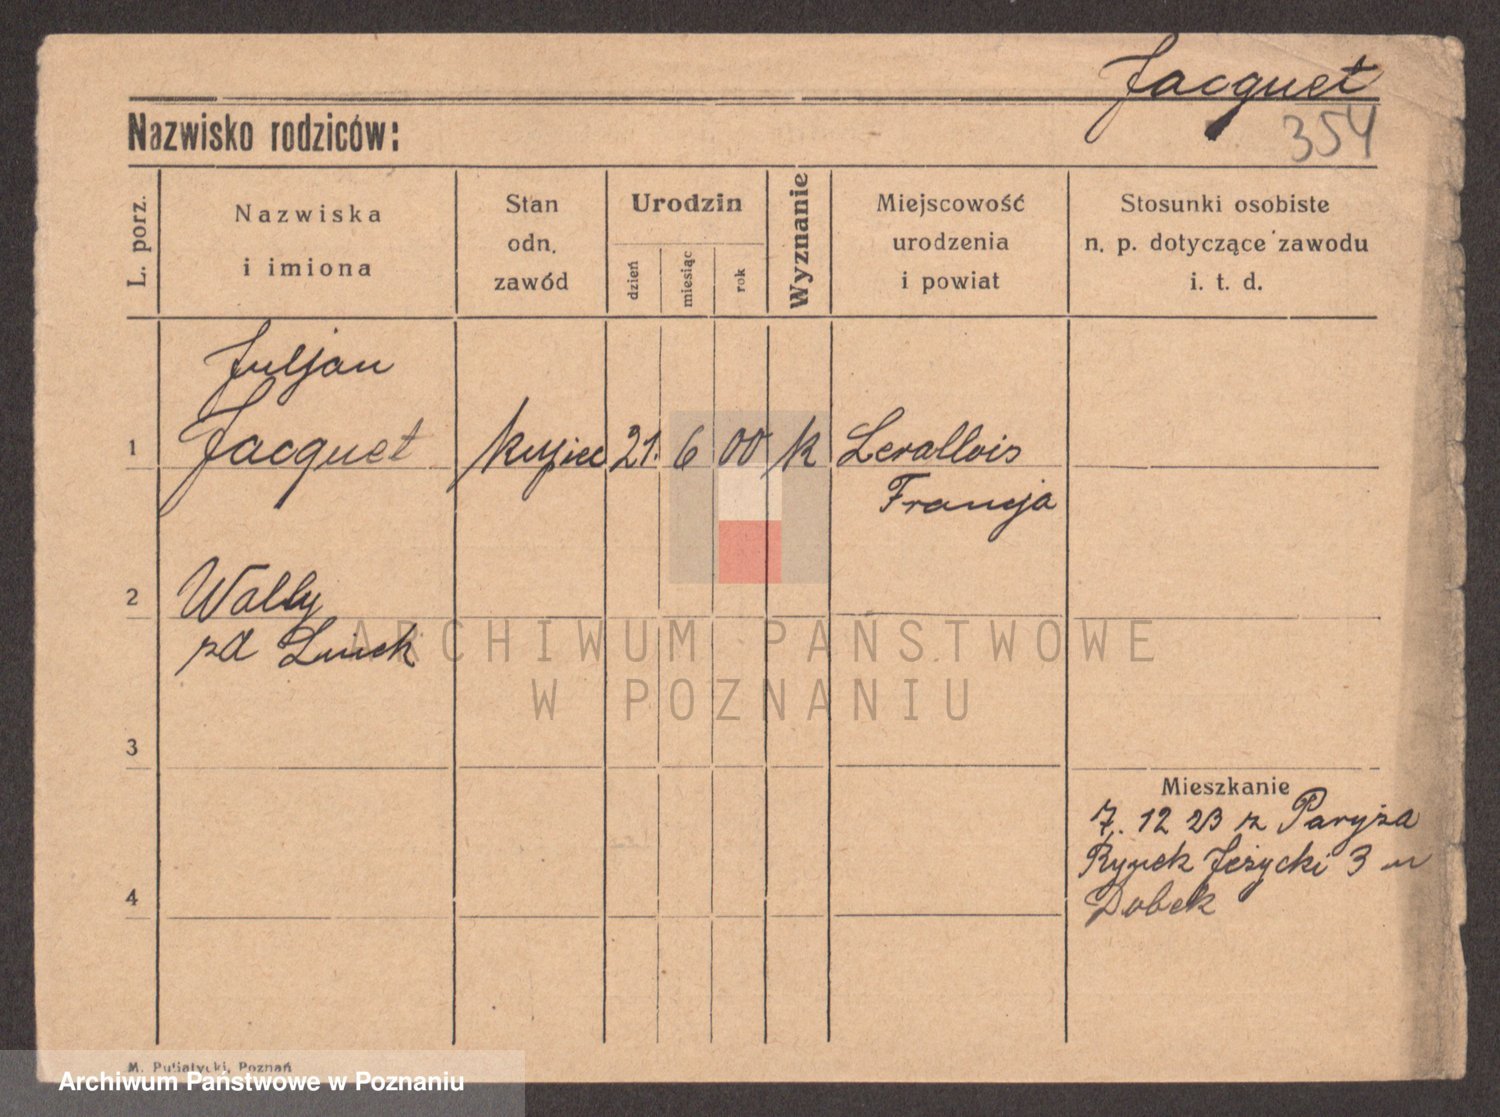 Jacquet
Nazwisko rodziców:
354
L. porz.
Nazwiska
i imiona
Stan
odn.
zawód
Urodzin
dzień
miesiąc
rok
Wyznanie
Miejscowość
urodzenia
i powiat
Stosunki osobiste
n. p. dotyczące zawodu
i. t. d.
Juljan
1 Jacquet kupiec 21. 6 00 k Levallois
Francja
2 Wally
zd Linck
ARCHIWUM PAŃSTWOWE
W POZNANIU
3
Mieszkanie
7. 12 23 z Paryża
Rynek Jeżycki 3 u
4 Dobek
M. Putiatycki, Poznań
Archiwum Państwowe w Poznaniu